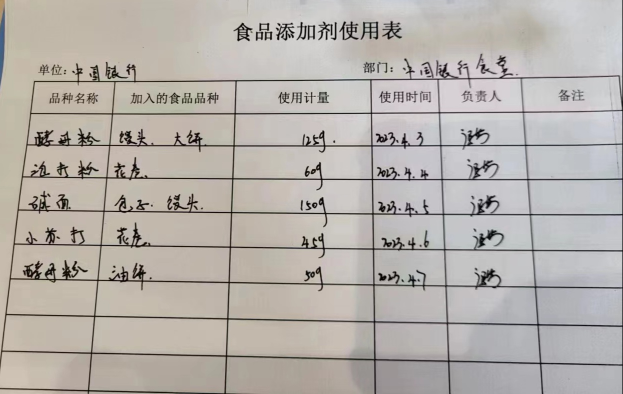 食品添加剂使用表
单位:中国银行 部门:中国银行食堂.
品种名称 加入的食品品种 使用计量 使用时间 负责人 备注
酵母粉 馒头. 大饼. 125g. 2023.4.3
泡打粉 花卷. 60g 2023.4.4
碱面 包子. 馒头. 150g 2023.4.5
小苏打 花卷. 45g 2023.4.6
酵母粉 油饼. 50g 2023.4.7